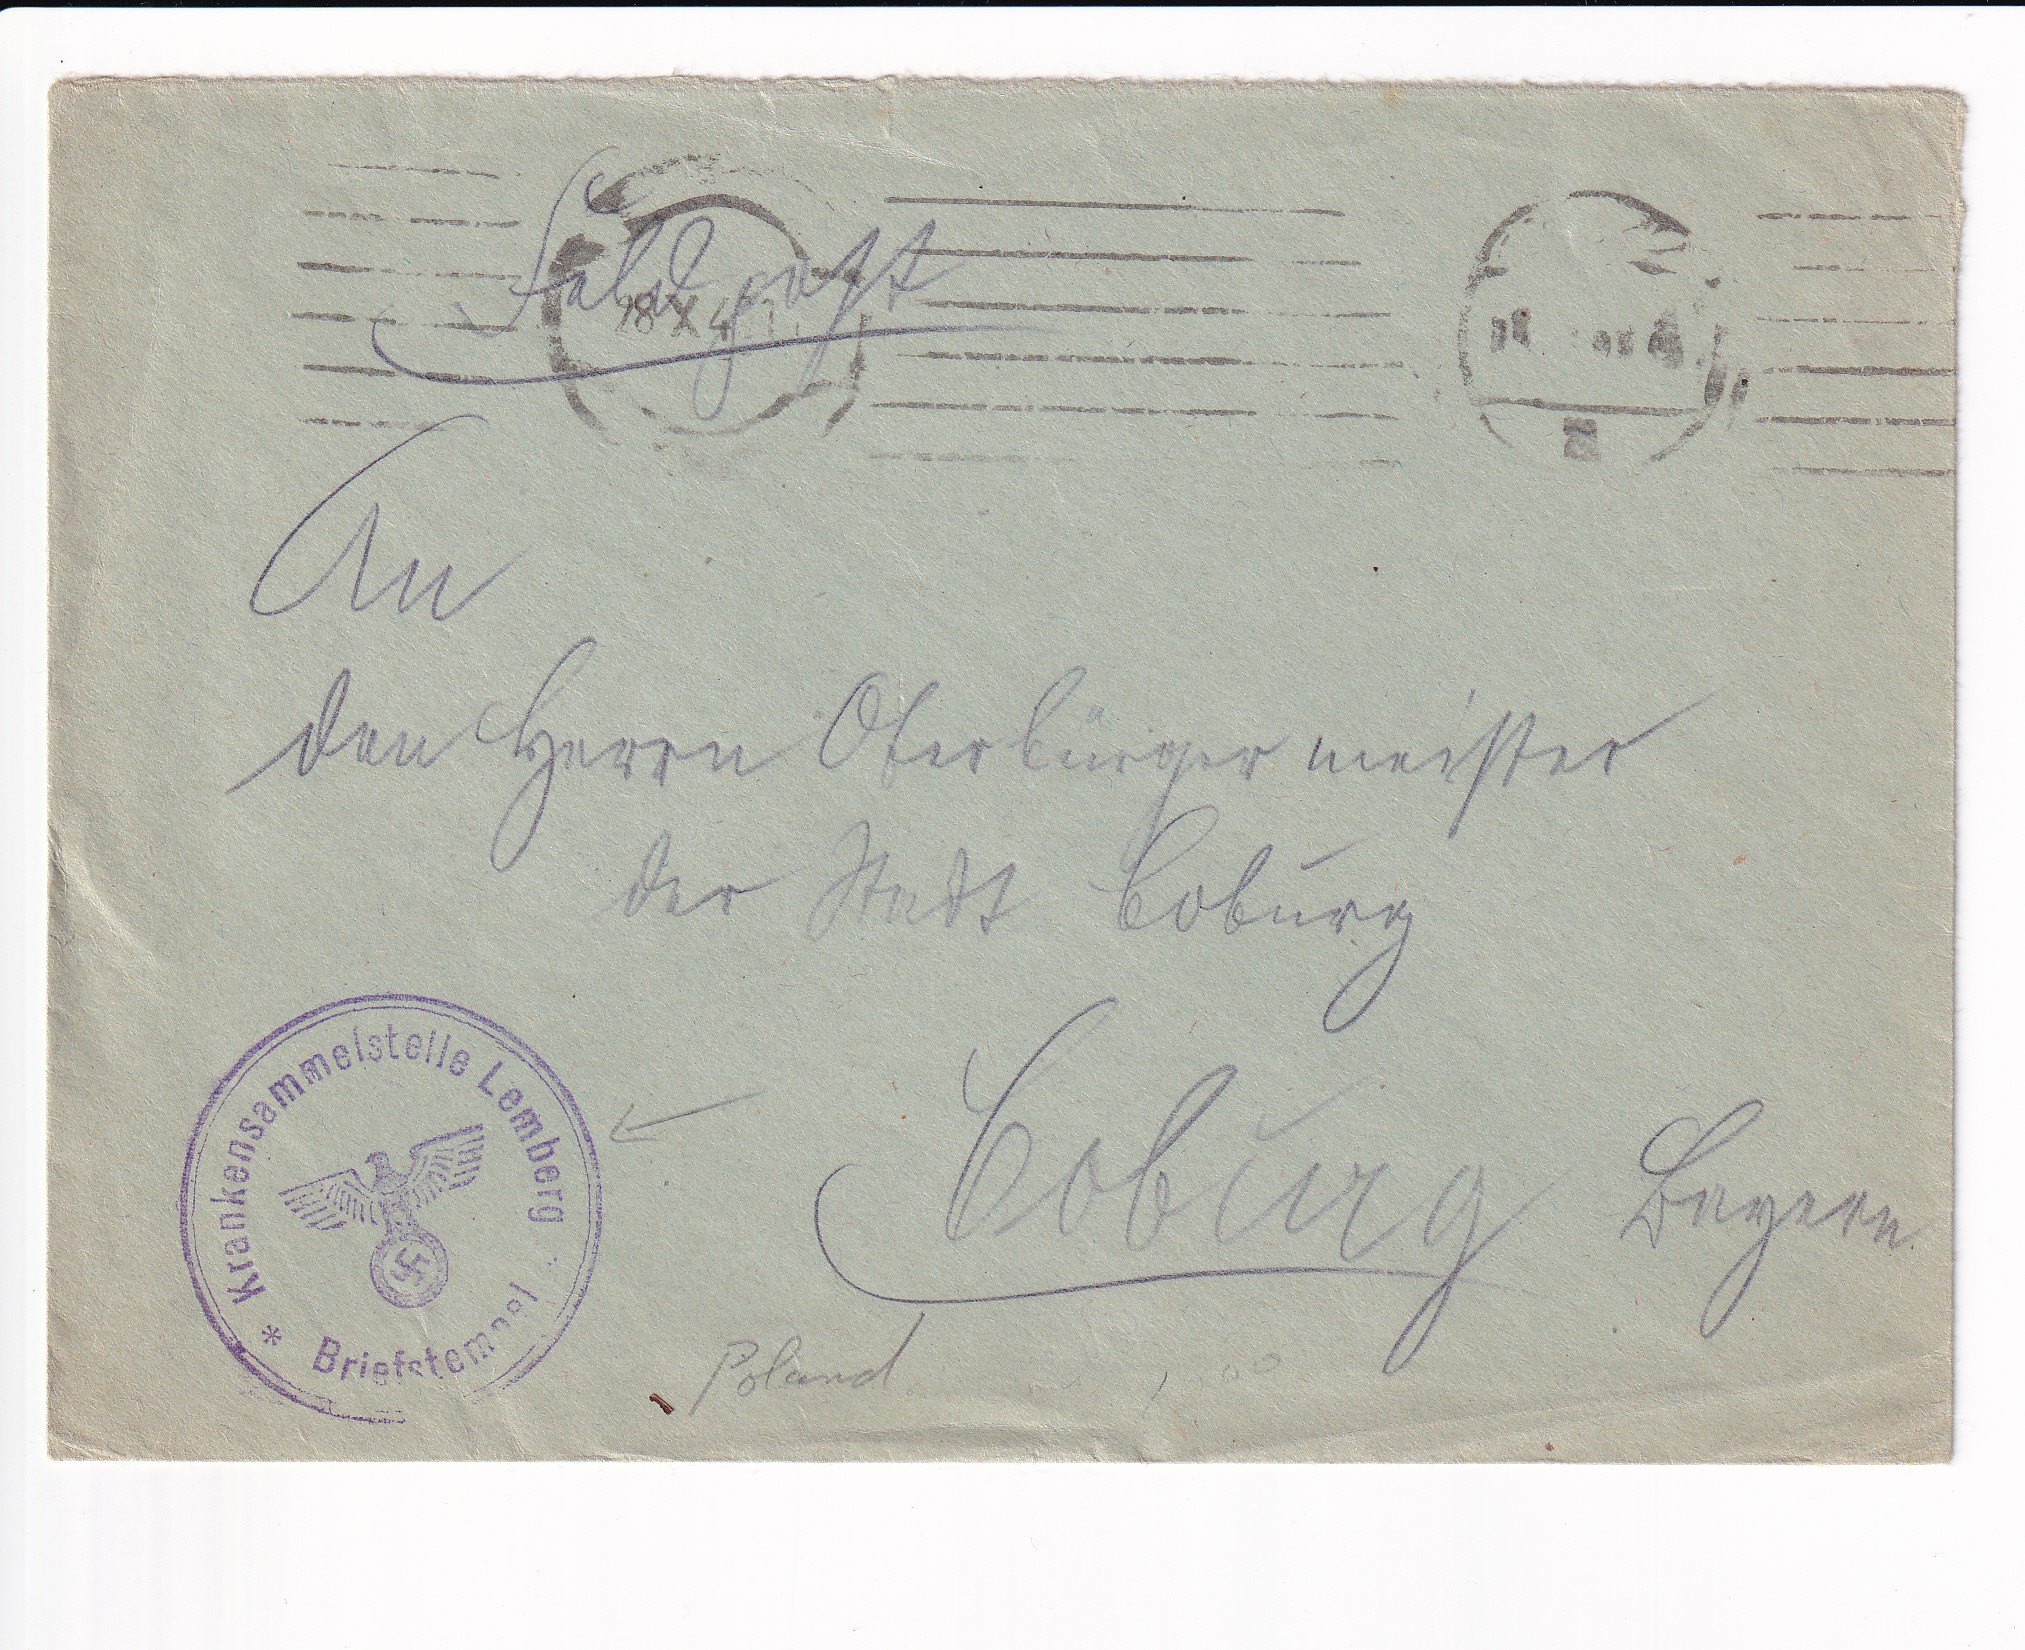 Feldpost
An
den Herrn Oberbürgermeister
der Stadt Coburg
Coburg Bayern
Krankensammelstelle Lemberg
* Briefstempel
Poland